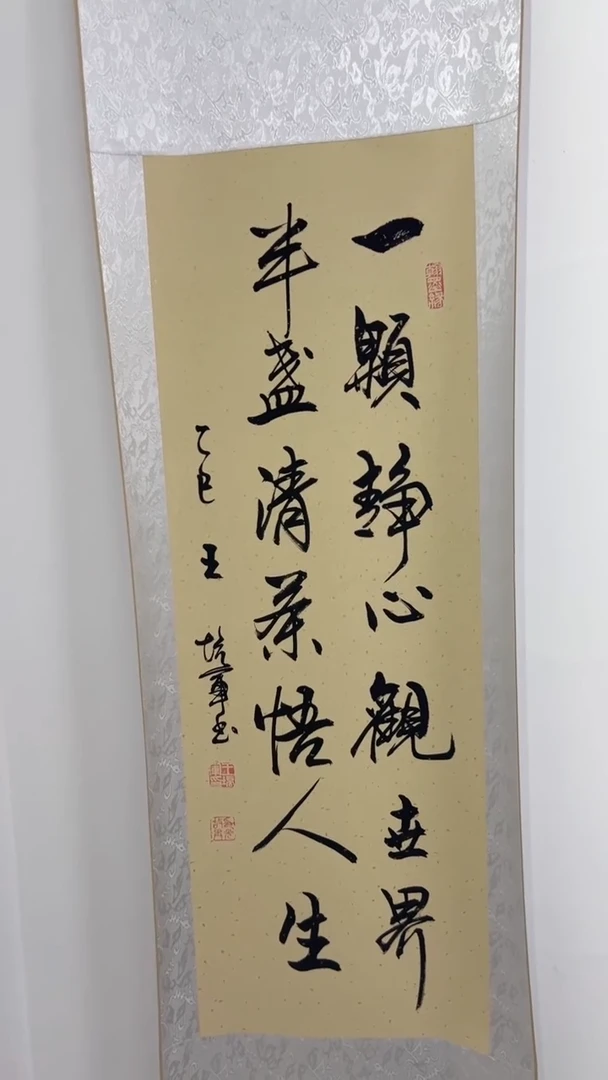 一顆靜心觀世界
半盞清茶悟人生
乙巳王培軍書